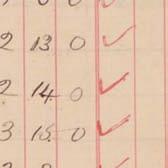 2 13 0 ✓
2 14 0 ✓
3 15 0 ✓